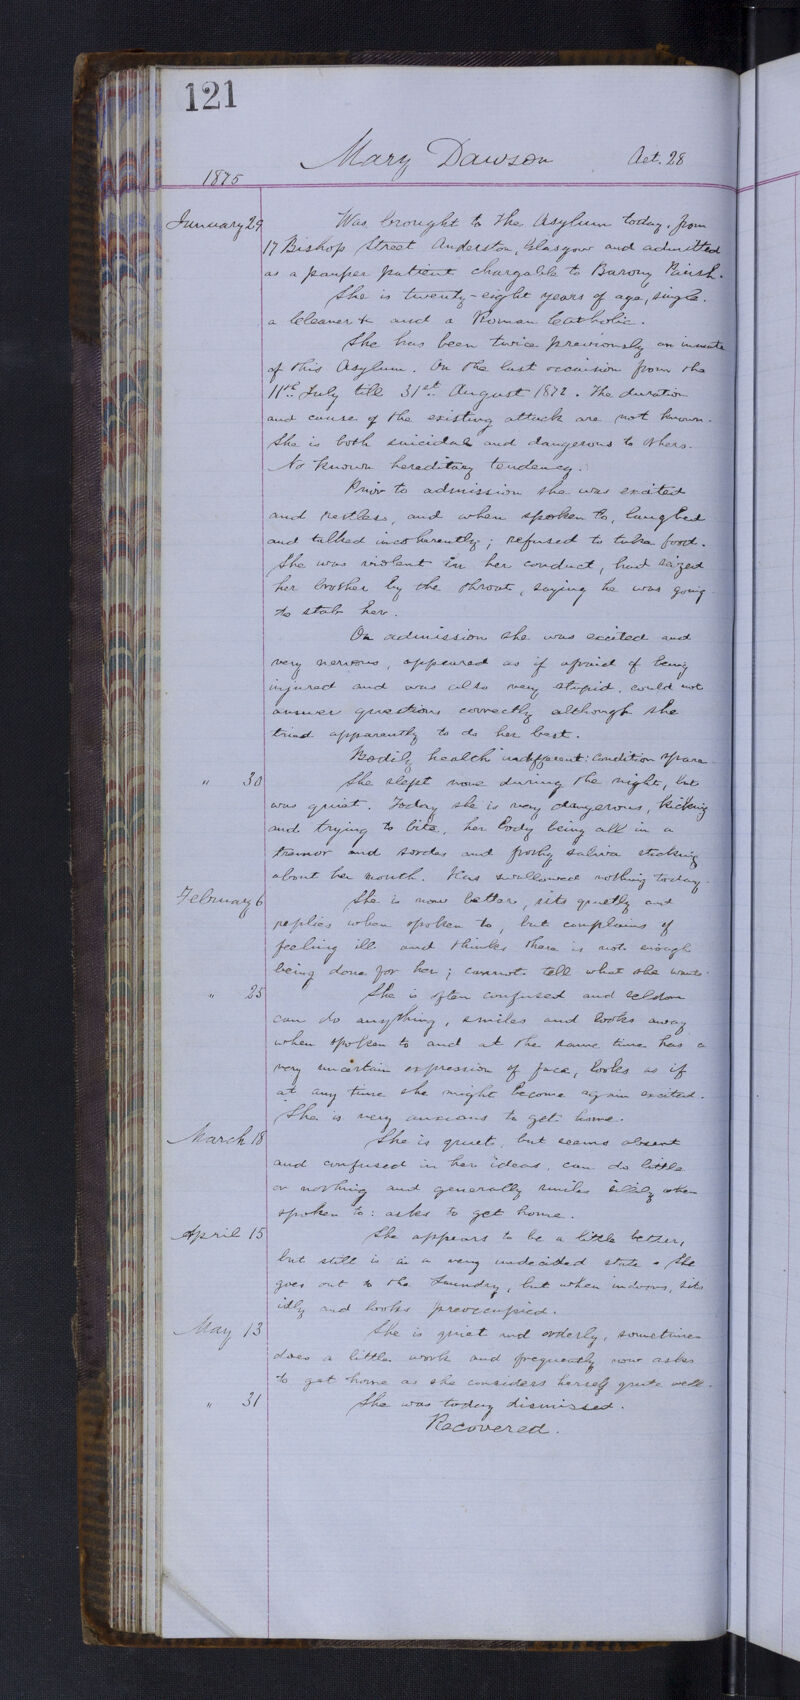 121
Mary Dawson Aet. 28
1875
January 29 Was brought to the Asylum today, from
17 Bishop Street Anderston, Glasgow and admitted
as a pauper patient chargable to Barony Parish.
She is twenty-eight years of age, single,
a Cleaner and a Roman Catholic.
She has been twice previously an inmate
of this Asylum. On the last occasion from the
11th July till 31st August 1872. The duration
and cause of the existing attack are not known.
She is both suicidal and dangerous to others.
No known hereditary tendency.
Prior to admission she was excited
and restless, and when spoken to, laughed
and talked incoherently; refused to take food.
She was violent in her conduct, had seized
her brother by the throat, saying he was going
to stab her.
On admission she was excited and
very nervous, appeared as if afraid of being
injured and was also very stupid, could not
answer questions correctly although she
tried apparently to do her best.
Bodily health indifferent: condition spare.
" 30 She slept none during the night, but
was quiet. Today she is very dangerous, kicking
and trying to bite, her body being all in a
tremor and sordes and frothy saliva sticking
about her mouth. Has swallowed nothing today.
February 6 She is now better, sits quietly and
replies when spoken to, but complains of
feeling ill and thinks there is not enough
being done for her; cannot tell what she wants.
" 25 She is often confused and seldom
can do anything, smiles and looks away
when spoken to and at the same time has a
very uncertain expression of face, looks as if
at any time she might become again excited.
She is very anxious to get home.
March 18 She is quiet, but seems absent
and confused in her ideas, can do little
or nothing and generally smiles sillily when
spoken to: asks to get home.
April 15 She appears to be a little better,
but still is in a very undecided state. She
goes out to the Laundry, but when indoors, sits
idly and looks preoccupied.
May 13 She is quiet and orderly, sometimes
does a little work and frequently now asks
to get home as she considers herself quite well.
" 31 She was today dismissed.
Recovered.